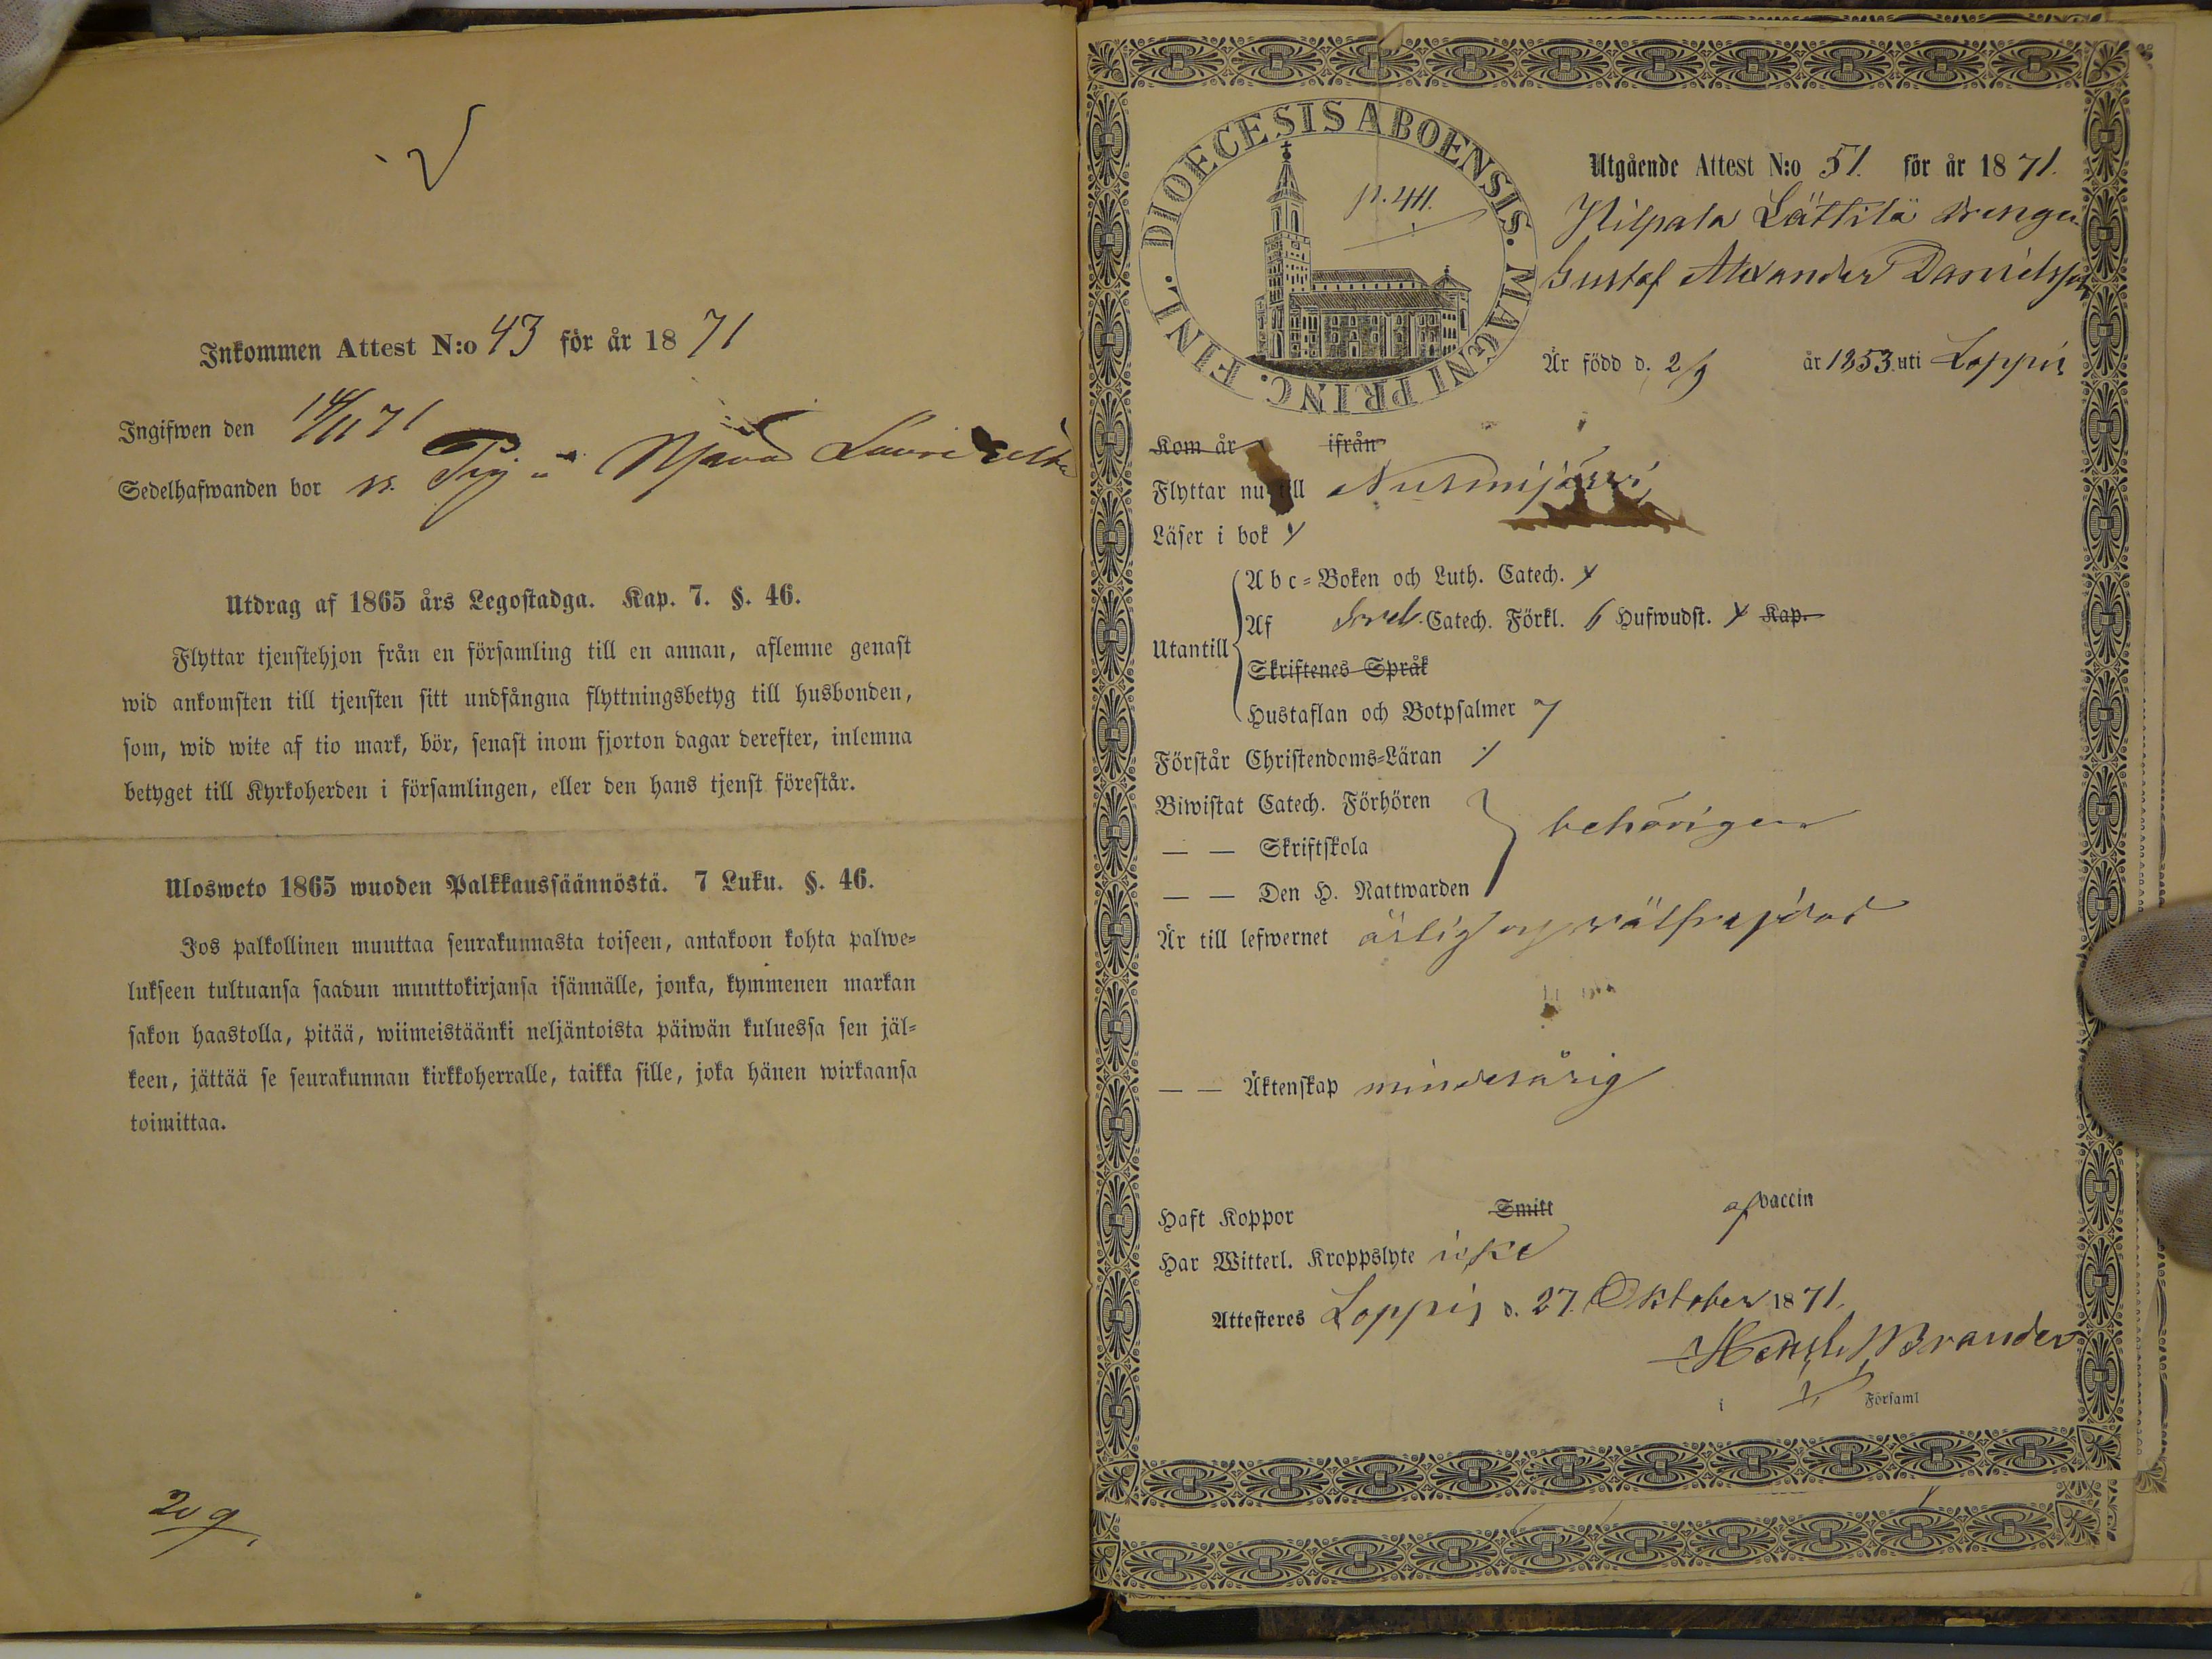 Inkommen Attest N:o 43 för år 1871
Ingifwen den 14/11 71
Sedelhafwanden bor
Utdrag af 1865 års Legostadga. Kap. 7. §. 46.
Flyttar tjenstehjon från en församling till en annan, aflemne genast
wid ankomsten till tjensten sitt undfångna flyttningsbetyg till husbonden,
som, wid wite af tio mark, bör, senast inom fjorton dagar derefter, inlemna
betyget till Kyrkoherden i församlingen, eller den hans tjenst förestår.
Ulosweto 1865 wuoden Palkkaussäännöstä. 7 Luku. §. 46.
Jos palkollinen muuttaa seurakunnasta toiseen, antakoon kohta palwe=
lukseen tultuansa saadun muuttokirjansa isännälle, jonka, kymmenen markan
sakon haastolla, pitää, wiimeistäänki neljäntoista päiwän kuluessa sen jäl=
keen, jättää se seurakunnan kirkkoherralle, taikka sille, joka hänen wirkaansa
toimittaa.
DIOECESIS ABOENSIS. MAGNI PRINC. FINL.
p. 411.
Utgående Attest N:o 51. för år 1871.
Hilpala Lättilä drengen
Gustaf Alexander Danielsson
Är född d. 2/9 år 1853 uti Loppis
Kom år ifrån
Flyttar nu till Nurmijärvi
Läser i bok
Utantill
Abc=Boken och Luth. Catech.
Af Sveb. Catech. Förkl. 6 Hufwudst. Kap.
Skriftenes Språk
Hustaflan och Botpsalmer
Förstår Christendoms=Läran
Biwistat Catech. Förhören
— — Skriftskola
behörigen
— — Den H. Nattwarden
Är till lefwernet ärlig och välfrejdad
— — Äktenskap minderårig
Haft Koppor Smitt af vaccin
Har Witterl. Kroppslyte icke
Attesteres Loppis d. 27. Oktober 1871.
Brander
i Församl